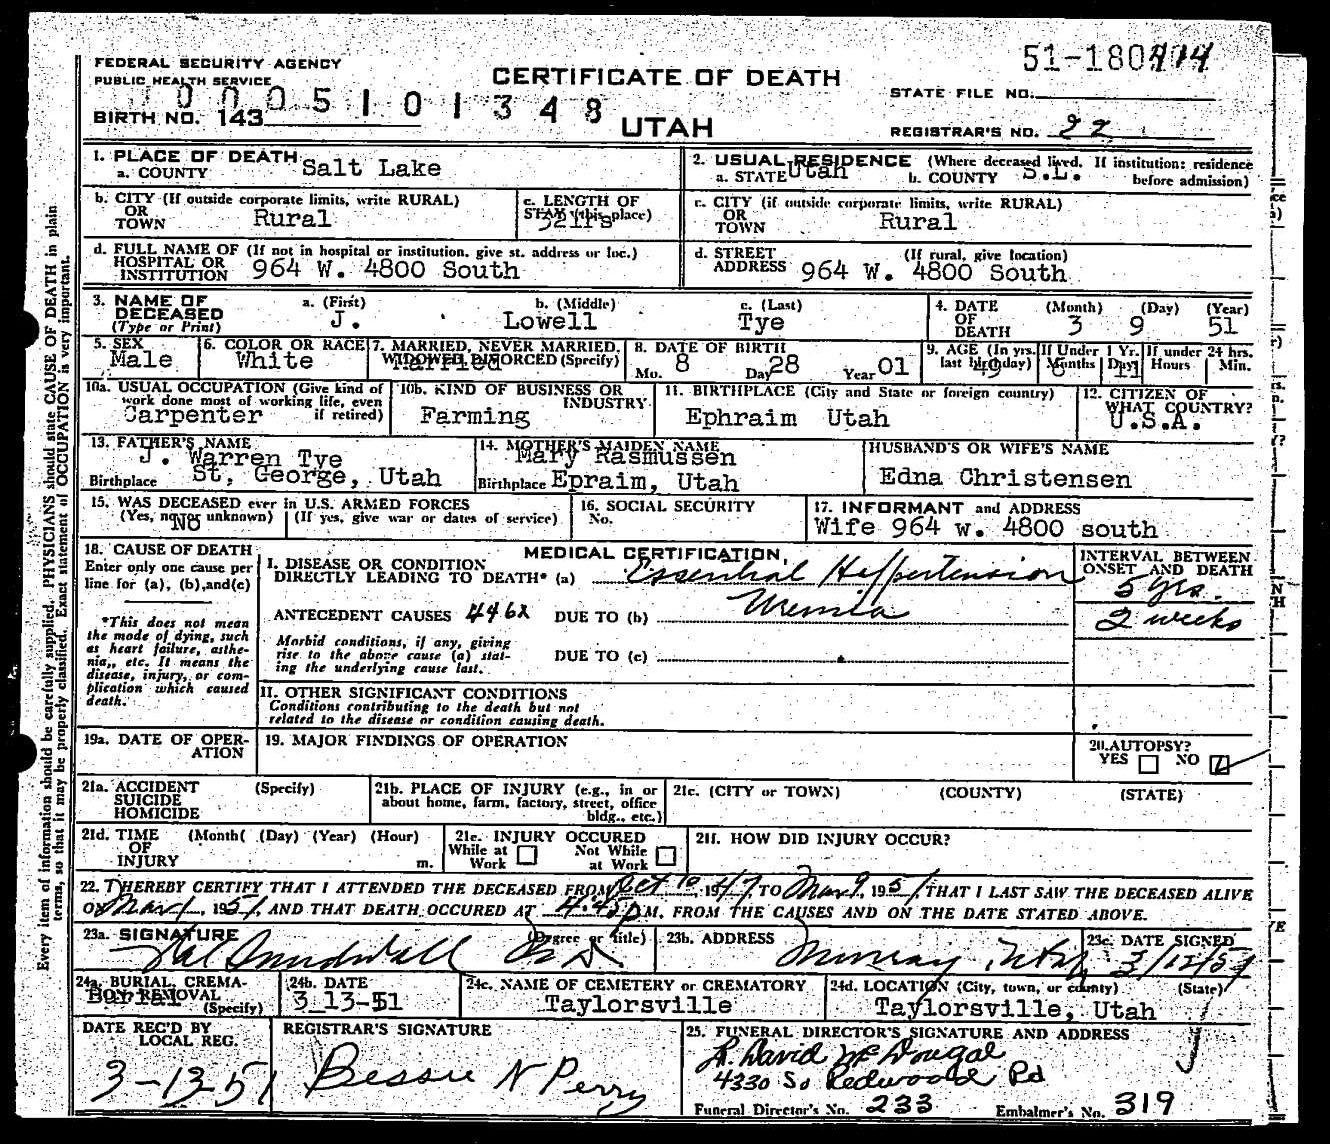 51-180414
FEDERAL SECURITY AGENCY
PUBLIC HEALTH SERVICE
CERTIFICATE OF DEATH
STATE FILE NO.
0005101348
BIRTH NO. 143
UTAH
REGISTRAR'S NO. 22
1. PLACE OF DEATH
a. COUNTY Salt Lake
2. USUAL RESIDENCE (Where deceased lived. If institution: residence before admission)
a. STATE Utah b. COUNTY S.L.
b. CITY (If outside corporate limits, write RURAL)
OR TOWN Rural
c. LENGTH OF STAY (this place)
c. CITY (if outside corporate limits, write RURAL)
OR TOWN Rural
d. FULL NAME OF (If not in hospital or institution, give st. address or loc.)
HOSPITAL OR INSTITUTION 964 W. 4800 South
d. STREET ADDRESS (If rural, give location)
964 W. 4800 South
3. NAME OF DECEASED (Type or Print)
a. (First) b. (Middle) c. (Last)
J. Lowell Tye
4. DATE OF DEATH (Month) (Day) (Year)
3 9 51
5. SEX
Male
6. COLOR OR RACE
White
7. MARRIED, NEVER MARRIED, WIDOWED DIVORCED (Specify)
Married
8. DATE OF BIRTH
Mo. 8 Day 28 Year 01
9. AGE (In yrs. last birthday) 49
If Under 1 Yr. Months 6 Days 11
If under 24 hrs. Hours Min.
10a. USUAL OCCUPATION (Give kind of work done most of working life, even if retired)
Carpenter
10b. KIND OF BUSINESS OR INDUSTRY
Farming
11. BIRTHPLACE (City and State or foreign country)
Ephraim Utah
12. CITIZEN OF WHAT COUNTRY?
U.S.A.
13. FATHER'S NAME
J. Warren Tye
Birthplace St, George, Utah
14. MOTHER'S MAIDEN NAME
Mary Rasmussen
Birthplace Epraim, Utah
HUSBAND'S OR WIFE'S NAME
Edna Christensen
15. WAS DECEASED ever in U.S. ARMED FORCES
(Yes, no, or unknown) No (If yes, give war or dates of service)
16. SOCIAL SECURITY No.
17. INFORMANT and ADDRESS
Wife 964 w. 4800 south
18. CAUSE OF DEATH
Enter only one cause per line for (a), (b), and (c)
*This does not mean the mode of dying, such as heart failure, asthenia,, etc. It means the disease, injury, or complication which caused death.
MEDICAL CERTIFICATION
I. DISEASE OR CONDITION DIRECTLY LEADING TO DEATH* (a) Essential Hypertension
ANTECEDENT CAUSES 446X DUE TO (b) Uremia
Morbid conditions, if any, giving rise to the above cause (a) stating the underlying cause last.
DUE TO (c)
INTERVAL BETWEEN ONSET AND DEATH
5 yrs.
2 weeks
II. OTHER SIGNIFICANT CONDITIONS
Conditions contributing to the death but not related to the disease or condition causing death.
19a. DATE OF OPERATION
19. MAJOR FINDINGS OF OPERATION
20. AUTOPSY?
YES NO
21a. ACCIDENT SUICIDE HOMICIDE (Specify)
21b. PLACE OF INJURY (e.g., in or about home, farm, factory, street, office bldg., etc.)
21c. (CITY or TOWN) (COUNTY) (STATE)
21d. TIME OF INJURY (Month( (Day) (Year) (Hour) m.
21e. INJURY OCCURED
While at Work Not While at Work
21f. HOW DID INJURY OCCUR?
22. I HEREBY CERTIFY THAT I ATTENDED THE DECEASED FROM Oct 10, 1947, TO Mar 9, 1951, THAT I LAST SAW THE DECEASED ALIVE
ON Mar 1, 1951, AND THAT DEATH OCCURED AT 4:45 P M, FROM THE CAUSES AND ON THE DATE STATED ABOVE.
23a. SIGNATURE (Degree or title)
Val Sundwall M D
23b. ADDRESS
Murray, Utah
23c. DATE SIGNED
3/12/51
24a. BURIAL, CREMATION, REMOVAL (Specify)
Burial
24b. DATE
3-13-51
24c. NAME OF CEMETERY or CREMATORY
Taylorsville
24d. LOCATION (City, town, or county) (State)
Taylorsville, Utah
DATE REC'D BY LOCAL REG.
3-13-51
REGISTRAR'S SIGNATURE
Bessie N Perry
25. FUNERAL DIRECTOR'S SIGNATURE AND ADDRESS
R. David McDougal
4330 So Redwood Rd
Funeral Director's No. 233 Embalmer's No. 319
Every item of information should be carefully supplied. PHYSICIANS should state CAUSE OF DEATH in plain
terms, so that it may be properly classified. Exact statement of OCCUPATION is very important.